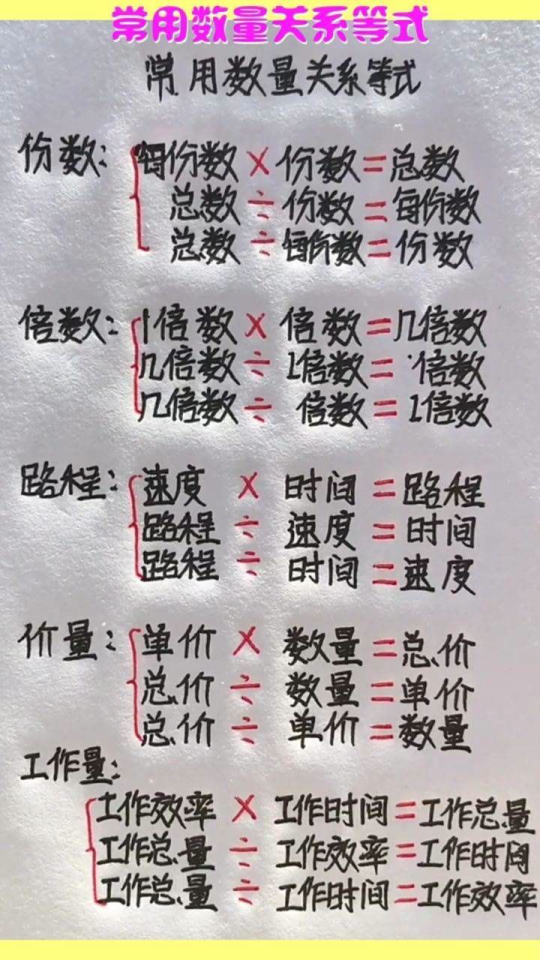 常用数量关系等式
常用数量关系等式
份数: 每份数 × 份数 = 总数
总数 ÷ 份数 = 每份数
总数 ÷ 每份数 = 份数
倍数: 1倍数 × 倍数 = 几倍数
几倍数 ÷ 1倍数 = 倍数
几倍数 ÷ 倍数 = 1倍数
路程: 速度 × 时间 = 路程
路程 ÷ 速度 = 时间
路程 ÷ 时间 = 速度
价量: 单价 × 数量 = 总价
总价 ÷ 数量 = 单价
总价 ÷ 单价 = 数量
工作量:
工作效率 × 工作时间 = 工作总量
工作总量 ÷ 工作效率 = 工作时间
工作总量 ÷ 工作时间 = 工作效率